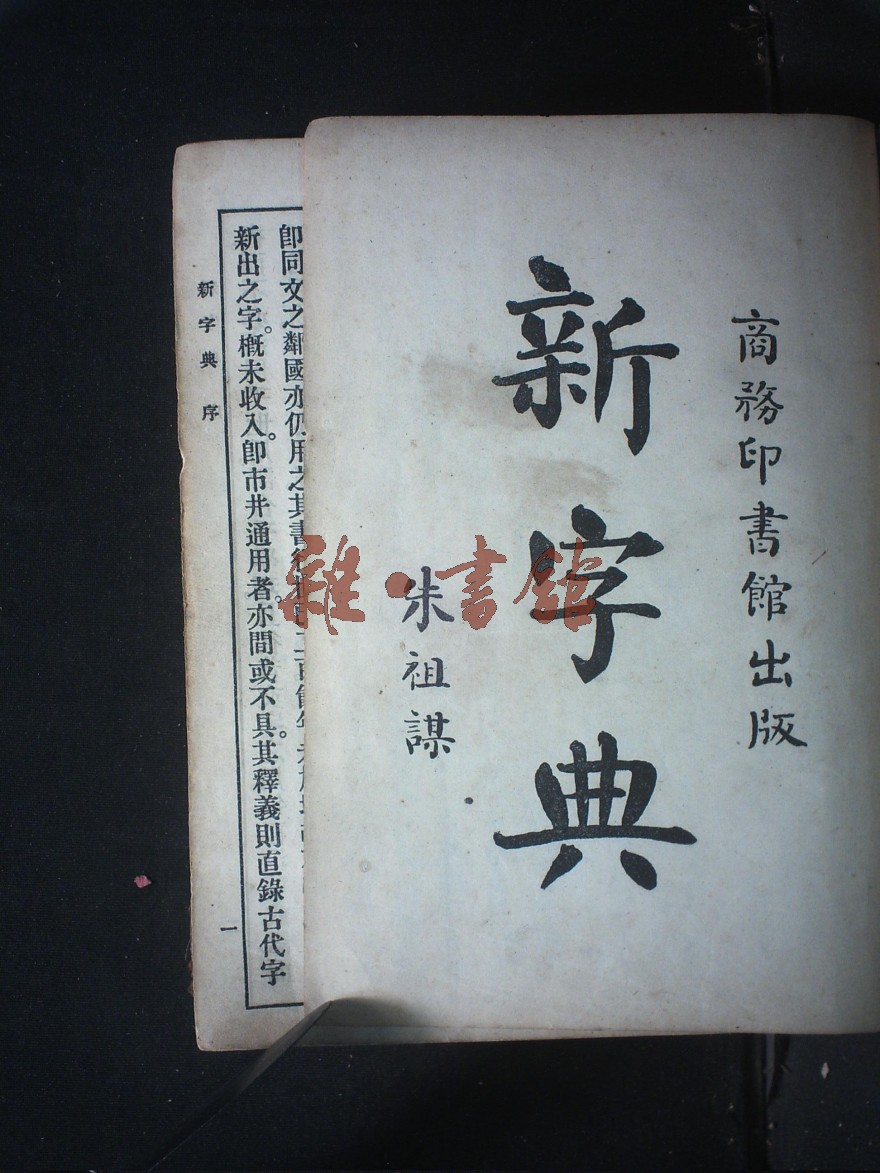 商務印書館出版
新字典
朱祖謀
雜·書館
即同文之鄰國亦仍用之其書
新出之字。概未收入。即市井通用者。亦間或不具。其釋義則直錄古代字
新字典 序
一